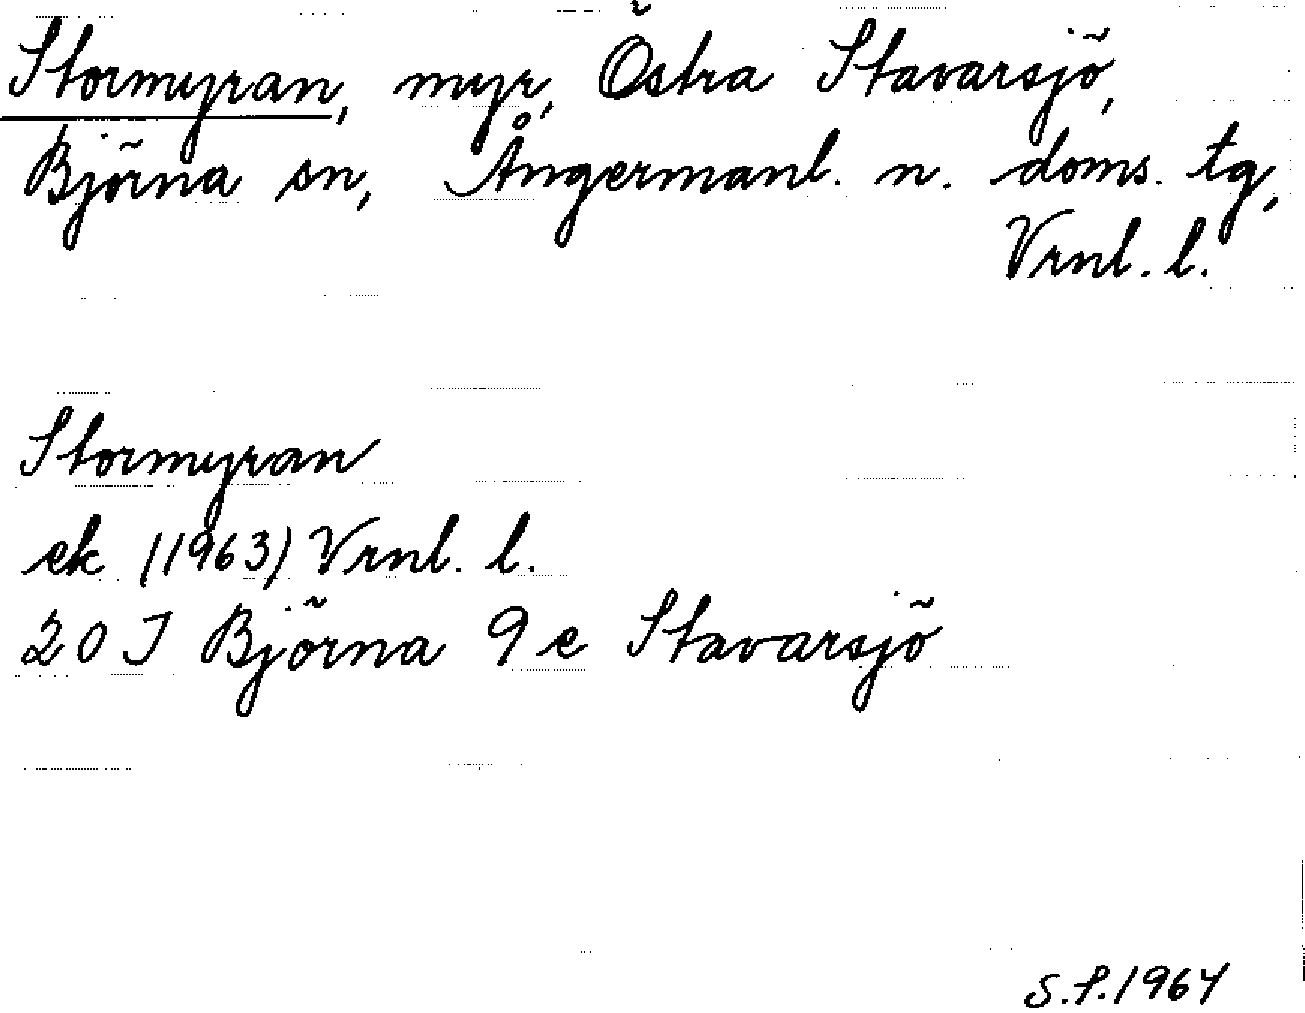 Stormyran, myr, Östra Stavarsjö,
Björna sn, Ångermanl. n. doms. tg,
Vrnl. l.
Stormyran
ek (1963) Vrnl. l.
20 J Björna 9 e Stavarsjö
S.P. 1964